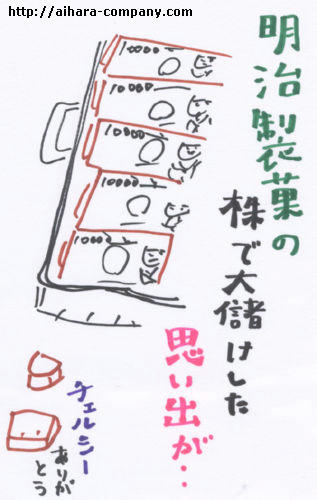 http://aihara-company.com
明治製菓の
株で大儲けした
思い出が‥
10000
10000
10000
10000
10000
チェルシー
ありが
とう